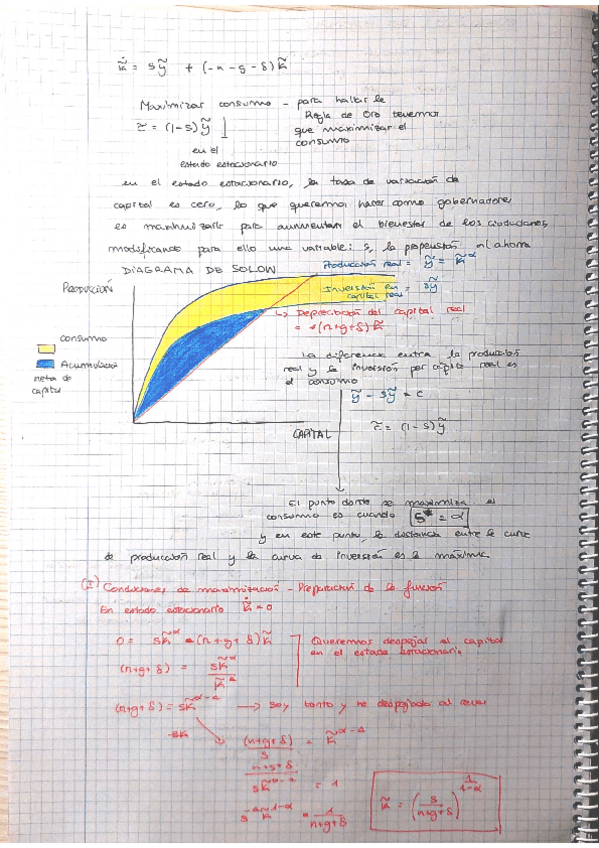 k̃̇ = sỹ + (-n-g-δ)k̃
Maximizar consumo - para hallar la
Regla de Oro tenemos
que maximizar el
consumo
c̃ = (1-s)ỹ
en el
estado estacionario
en el estado estacionario, la tasa de variación de
capital es cero, lo que queremos hacer como gobernadores
es maximizarlo para aumentar el bienestar de los ciudadanos,
modificando para ello una variable: s, la propensión al ahorro
DIAGRAMA DE SOLOW
Producción real = ỹ = k̃^α
PRODUCCIÓN
Inversión en capital real = sỹ
↳ Depreciación del capital real
= (n+g+δ)k̃
Consumo
Acumulación
neta de
capital
CAPITAL
La diferencia entre la producción
real y la inversión per cápita real es
el consumo
ỹ - sỹ = c
c̃ = (1-s)ỹ
El punto donde se maximiza el
consumo es cuando s* = α
y en este punto, la distancia entre la curva
de producción real y la curva de inversión es la máxima.
(I) Condiciones de maximización - Preparación de la función
En estado estacionario k̃̇ = 0
0 = sk̃^α - (n+g+δ)k̃
Queremos despejar el capital
en el estado estacionario.
(n+g+δ) = sk̃^α / k̃
(n+g+δ) = sk̃^α-1 → soy tonto y he despejado al revés
(n+g+δ) / s = k̃^α-1
n+g+δ / sk̃^α-1 = 1
s^-1 k̃^1-α = 1 / n+g+δ
k̃ = (s / n+g+δ)^1/1-α